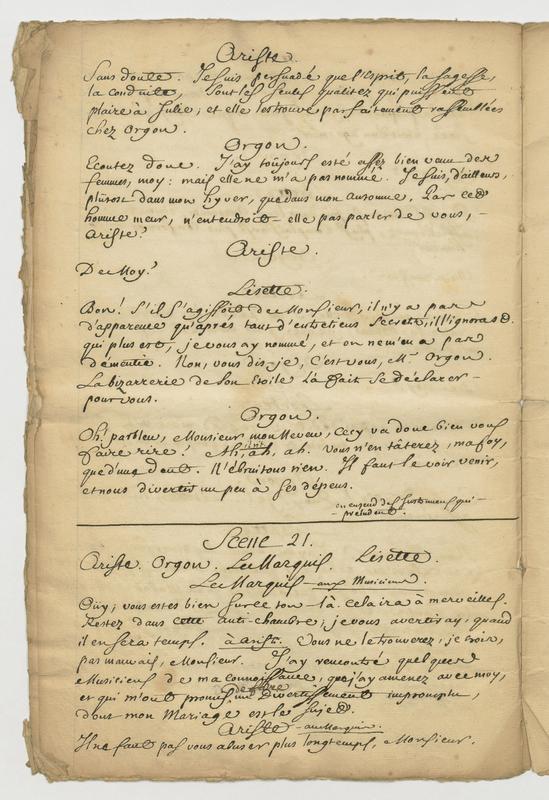 Ariste.
Sans doute. Je suis persuadé que l'Esprit, la sagesse,
la conduite, sont les seules qualitez qui puissent
plaire à Julie, et elle les trouve parfaitement rassemblées
chez Orgon.
Orgon.
Ecoutez donc. J'ay toûjours esté assez bien venu des
femmes, moy : mais elle ne m'a pas nommé. Je suis, d'ailleurs,
plûtost dans mon hyver, que dans mon automne. Par cet
homme meur, n'entendroit-elle pas parler de vous, -
Ariste ?
Ariste.
De Moy ?
Lisette.
Bon! S'il s'agissoit de Monsieur, il n'y a pas
d'apparence qu'aprés tant d'entretiens secrets, il l'ignorast.
qui plus est, je vous ay nommé, et on ne m'en a pas
démentie. Non, vous dis-je, C'est vous, Mr. Orgon.
La bizarrerie de son Etoile l'a fait se déclarer -
pour vous.
Orgon.
Oh! parbleu, Monsieur mon Neveu, Cecy va donc bien vous
faire rire! Ah, ah, ah. Vous n'en tâterez, ma foy,
que d'une dent. N'ébruitons rien. Il faut le voir venir,
et nous divertir un peu à ses dépens.
on entend des Instrumens qui -
- préludent.
Scene 21.
Ariste. Orgon. Le Marquis. Lisette.
Le Marquis - aux Musiciens.
Ouy; vous estes bien sur ce ton là. cela ira à merveilles.
Restez dans cette anti-chambre; je vous avertiray, quand
il en sera temps. à Ariste. Vous ne le trouverez, je crois,
pas mauvais, Monsieur. J'ay rencontré quelques
Musiciens de ma connoissance, que j'ay amenez avec moy,
et qui m'ont promis un divertissement impromptu,
dont mon Mariage est le sujet.
Ariste - au Marquis.
Il ne faut pas vous abuser plus longtemps, Monsieur.